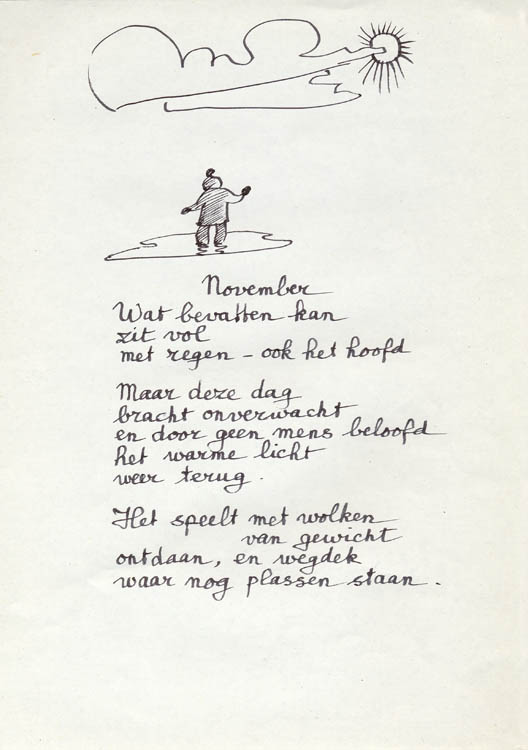 November
Wat bevatten kan
zit vol
met regen – ook het hoofd
Maar deze dag
bracht onverwacht
en door geen mens beloofd
het warme licht
weer terug.
Het speelt met wolken
van gewicht
ontdaan, en wegdek
waar nog plassen staan.